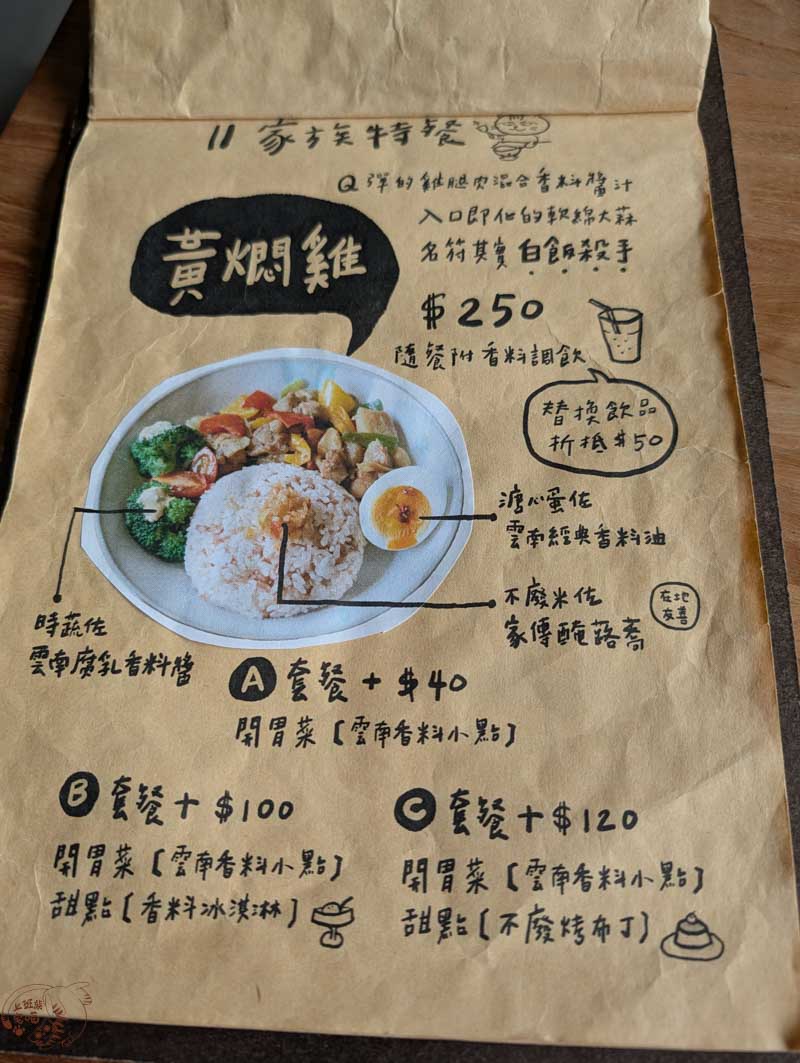 家族特餐
Q彈的雞腿肉混合香料醬汁
入口即化的軟綿大蒜
名符其實 白飯殺手
黃燜雞
$250
隨餐附香料調飲
替換飲品
折抵$50
溏心蛋佐
雲南經典香料油
不廢米佐
家傳醃蕗蕎
在地
友善
時蔬佐
雲南腐乳香料醬
A 套餐+$40
開胃菜〔雲南香料小點〕
B 套餐+$100
開胃菜〔雲南香料小點〕
甜點〔香料冰淇淋〕
C 套餐+$120
開胃菜〔雲南香料小點〕
甜點〔不廢烤布丁〕